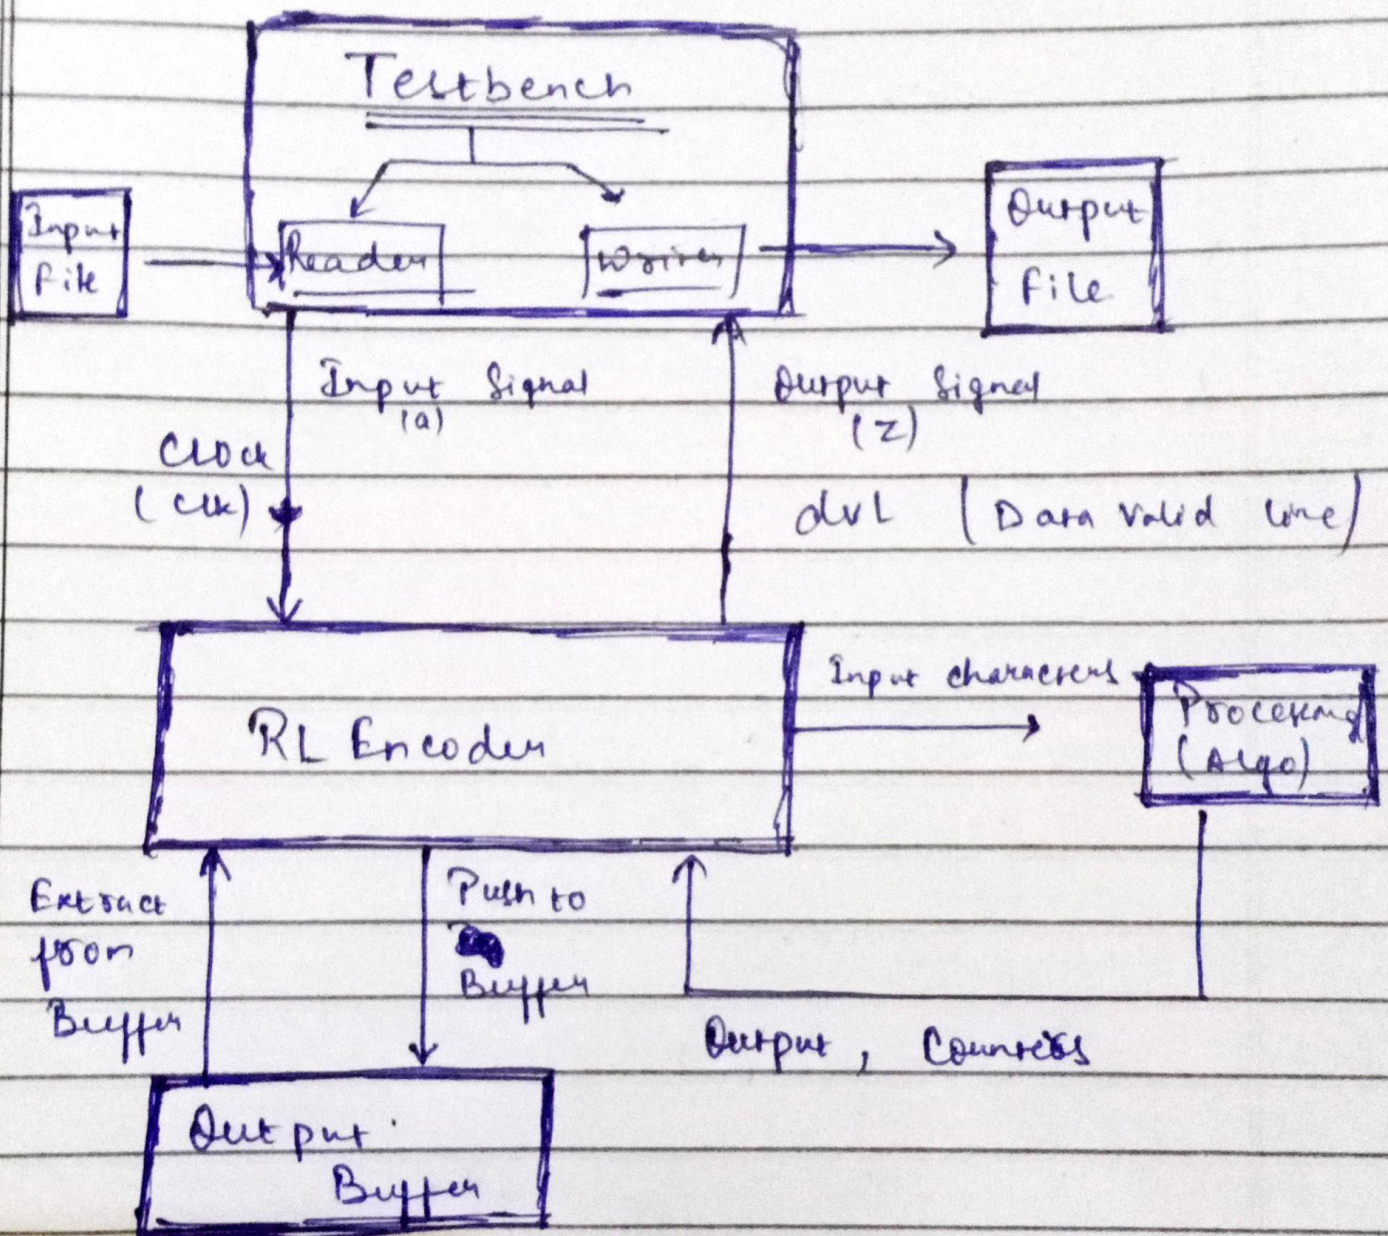 Testbench
Input
file
Reader
Writer
Output
file
Input Signal
(a)
Output Signal
(Z)
Clock
(Clk)
dvl (Data Valid line)
RL Encoder
Input characters
Processing
(Algo)
Extract
from
Buffer
Push to
Buffer
Output, Counters
Output
Buffer